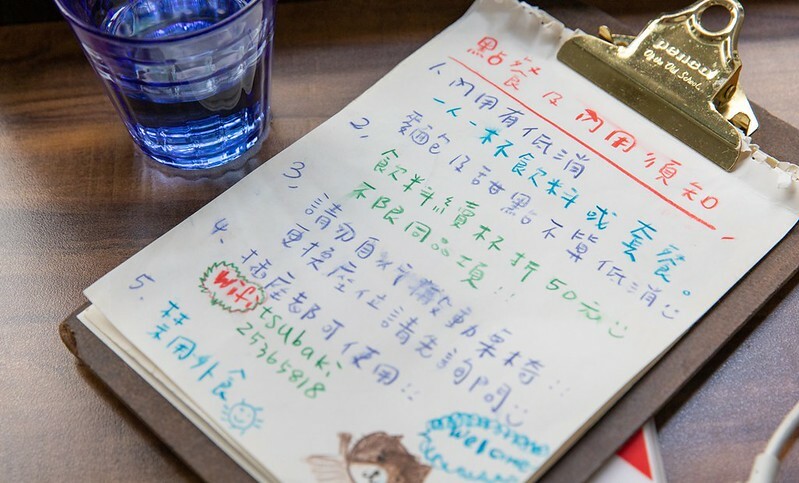 penco
點餐及內用須知
1、內用有低消
一人一杯飲料或套餐。
2、麵包及甜點不算低消
飲料續杯折50元
不限同品項
3、請勿自行搬動桌椅
更換座位請先詢問
4、插座都可使用
Wifi
tsubaki
25365818
5、禁用外食
Welcome